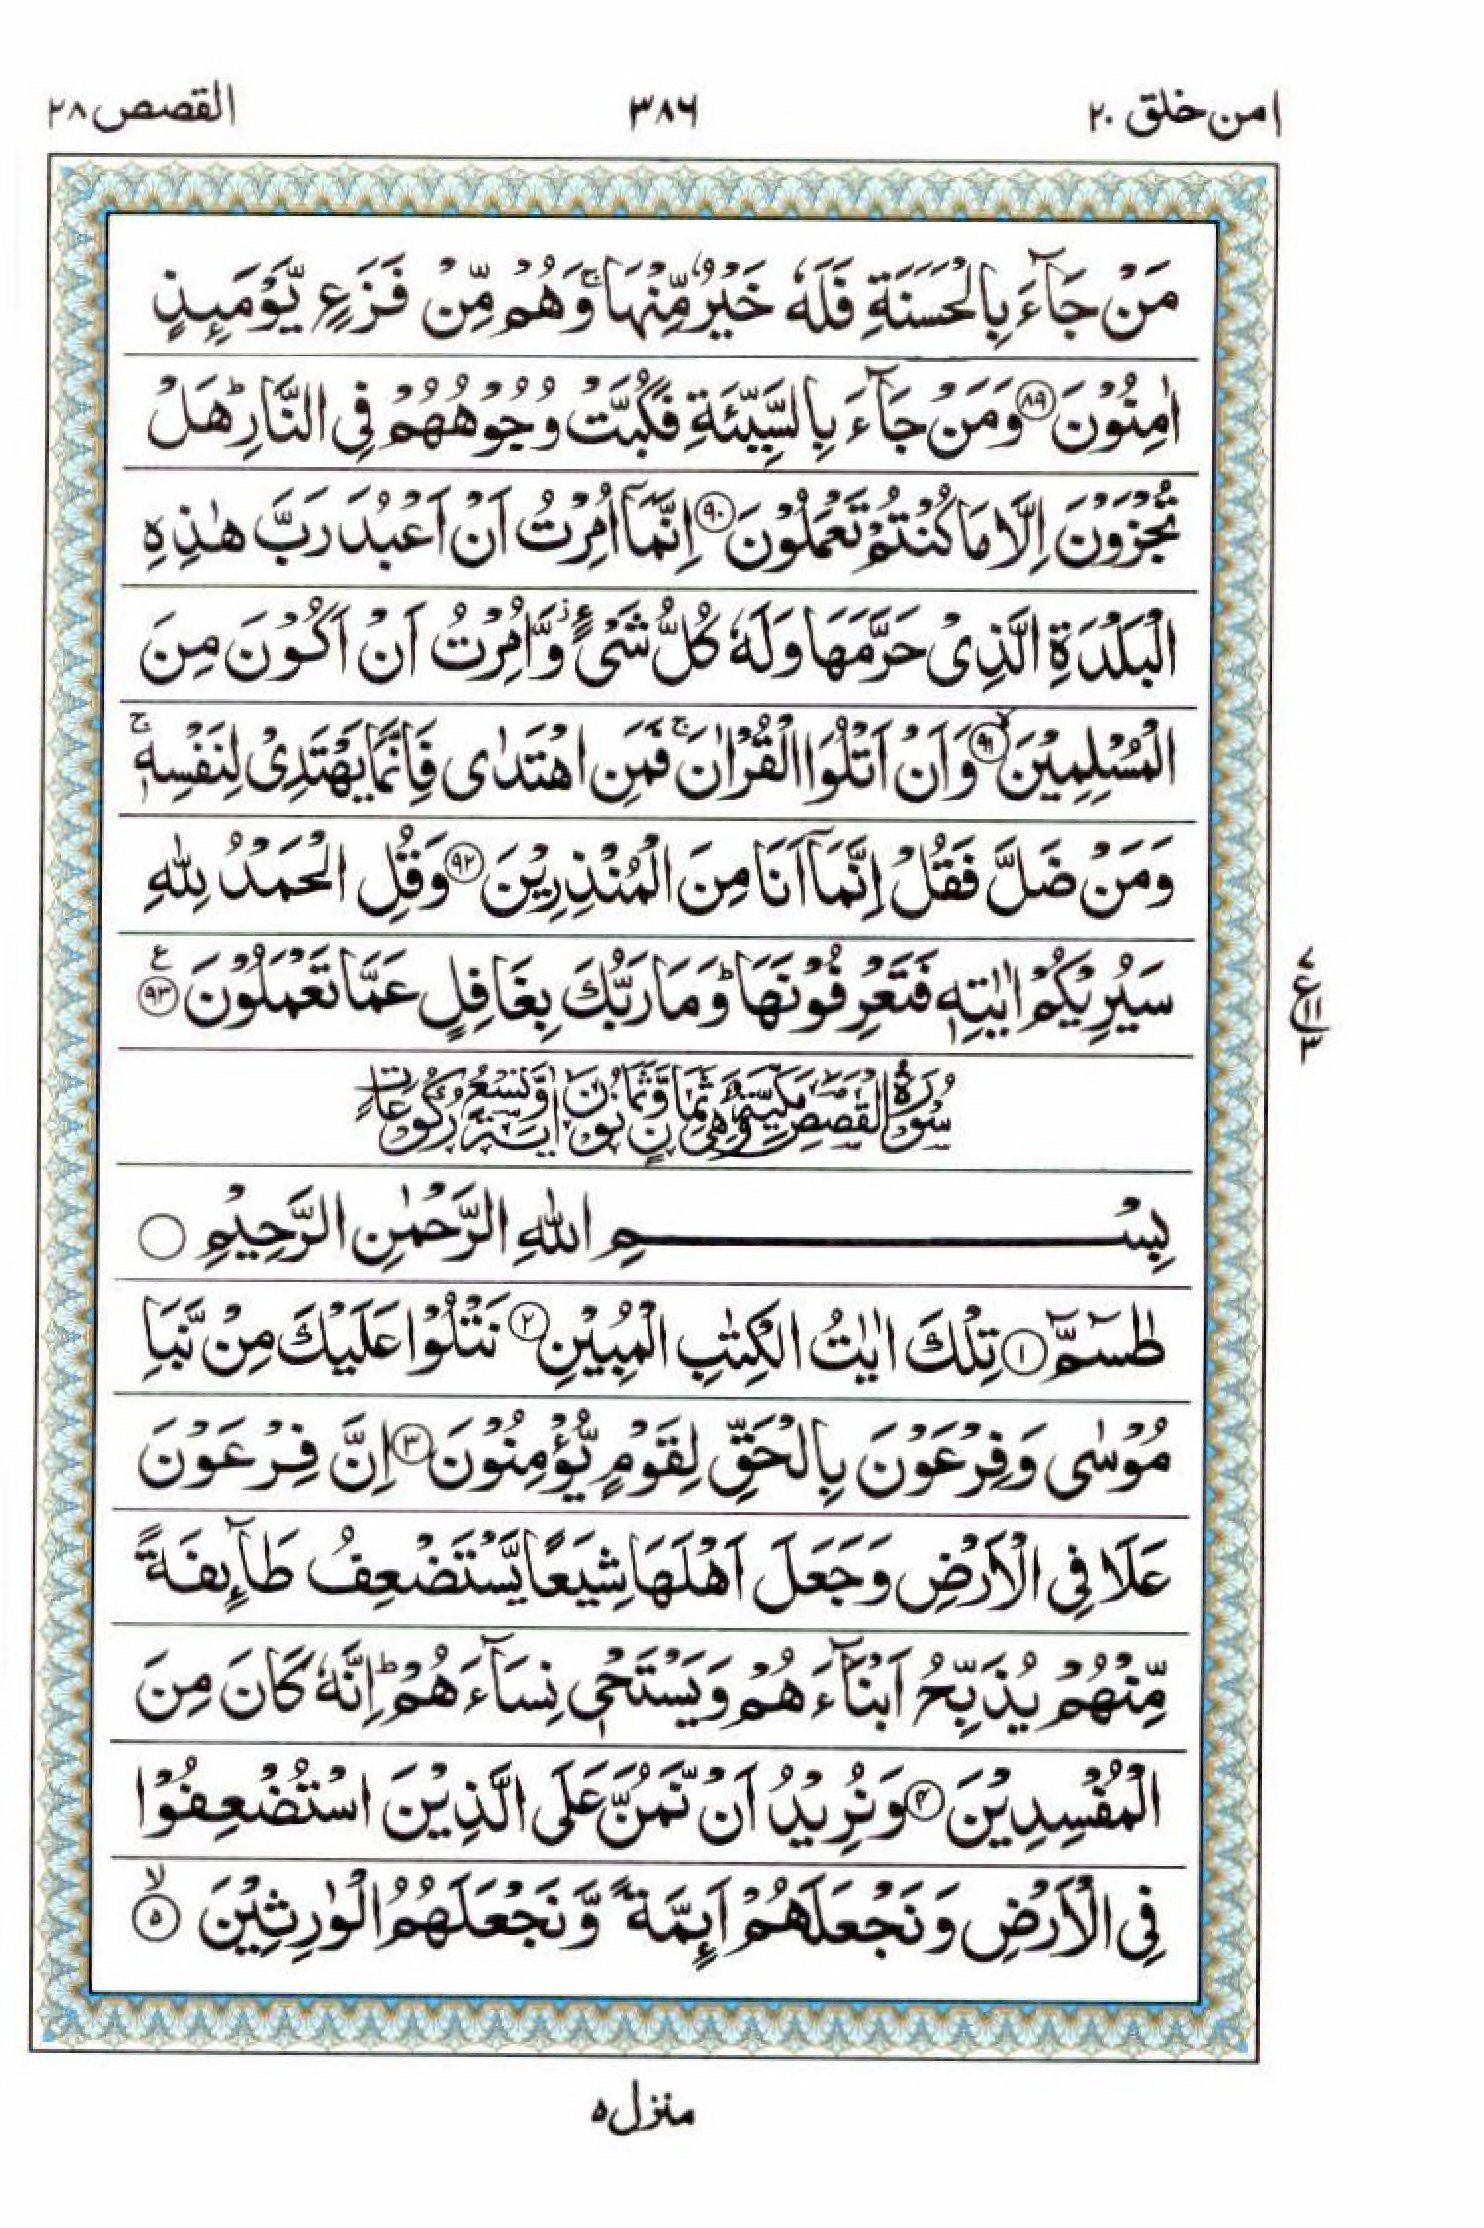 امن خلق ٢٠
٣٨٦
القصص ٢٨
مَنْ جَآءَ بِالْحَسَنَةِ فَلَهٗ خَيْرٌ مِّنْهَا ۚ وَهُمْ مِّنْ فَزَعٍ يَّوْمَىِٕذٍ
اٰمِنُوْنَ ﴿٨٩﴾ وَمَنْ جَآءَ بِالسَّيِّئَةِ فَكُبَّتْ وُجُوْهُهُمْ فِى النَّارِ ؕ هَلْ
تُجْزَوْنَ اِلَّا مَا كُنْتُمْ تَعْمَلُوْنَ ﴿٩٠﴾ اِنَّمَآ اُمِرْتُ اَنْ اَعْبُدَ رَبَّ هٰذِهِ
الْبَلْدَةِ الَّذِىْ حَرَّمَهَا وَلَهٗ كُلُّ شَىْءٍ ز وَّاُمِرْتُ اَنْ اَكُوْنَ مِنَ
الْمُسْلِمِيْنَ ۙ ﴿٩١﴾ وَاَنْ اَتْلُوَا الْقُرْاٰنَ ۚ فَمَنِ اهْتَدٰى فَاِنَّمَا يَهْتَدِىْ لِنَفْسِهٖ ۚ
وَمَنْ ضَلَّ فَقُلْ اِنَّمَآ اَنَا مِنَ الْمُنْذِرِيْنَ ﴿٩٢﴾ وَقُلِ الْحَمْدُ لِلّٰهِ
سَيُرِيْكُمْ اٰيٰتِهٖ فَتَعْرِفُوْنَهَا ؕ وَمَا رَبُّكَ بِغَافِلٍ عَمَّا تَعْمَلُوْنَ ﴿٩٣﴾ ع
٧
ع ١١
٣
سُوْرَةُ الْقَصَصِ مَكِّيَّةٌ وَّهِىَ ثَمَانٌ وَّثَمَانُوْنَ اٰيَةً وَّتِسْعُ رُكُوْعَاتٍ
بِسْمِ اللّٰهِ الرَّحْمٰنِ الرَّحِيْمِ
طٰسٓمّٓ ﴿١﴾ تِلْكَ اٰيٰتُ الْكِتٰبِ الْمُبِيْنِ ﴿٢﴾ نَتْلُوْا عَلَيْكَ مِنْ نَّبَاِ
مُوْسٰى وَفِرْعَوْنَ بِالْحَقِّ لِقَوْمٍ يُّؤْمِنُوْنَ ﴿٣﴾ اِنَّ فِرْعَوْنَ
عَلَا فِى الْاَرْضِ وَجَعَلَ اَهْلَهَا شِيَعًا يَّسْتَضْعِفُ طَآىِٕفَةً
مِّنْهُمْ يُذَبِّحُ اَبْنَآءَهُمْ وَيَسْتَحْىٖ نِسَآءَهُمْ ؕ اِنَّهٗ كَانَ مِنَ
الْمُفْسِدِيْنَ ﴿٤﴾ وَنُرِيْدُ اَنْ نَّمُنَّ عَلَى الَّذِيْنَ اسْتُضْعِفُوْا
فِى الْاَرْضِ وَنَجْعَلَهُمْ اَىِٕمَّةً وَّنَجْعَلَهُمُ الْوٰرِثِيْنَ ۙ ﴿٥﴾
منزل ٥